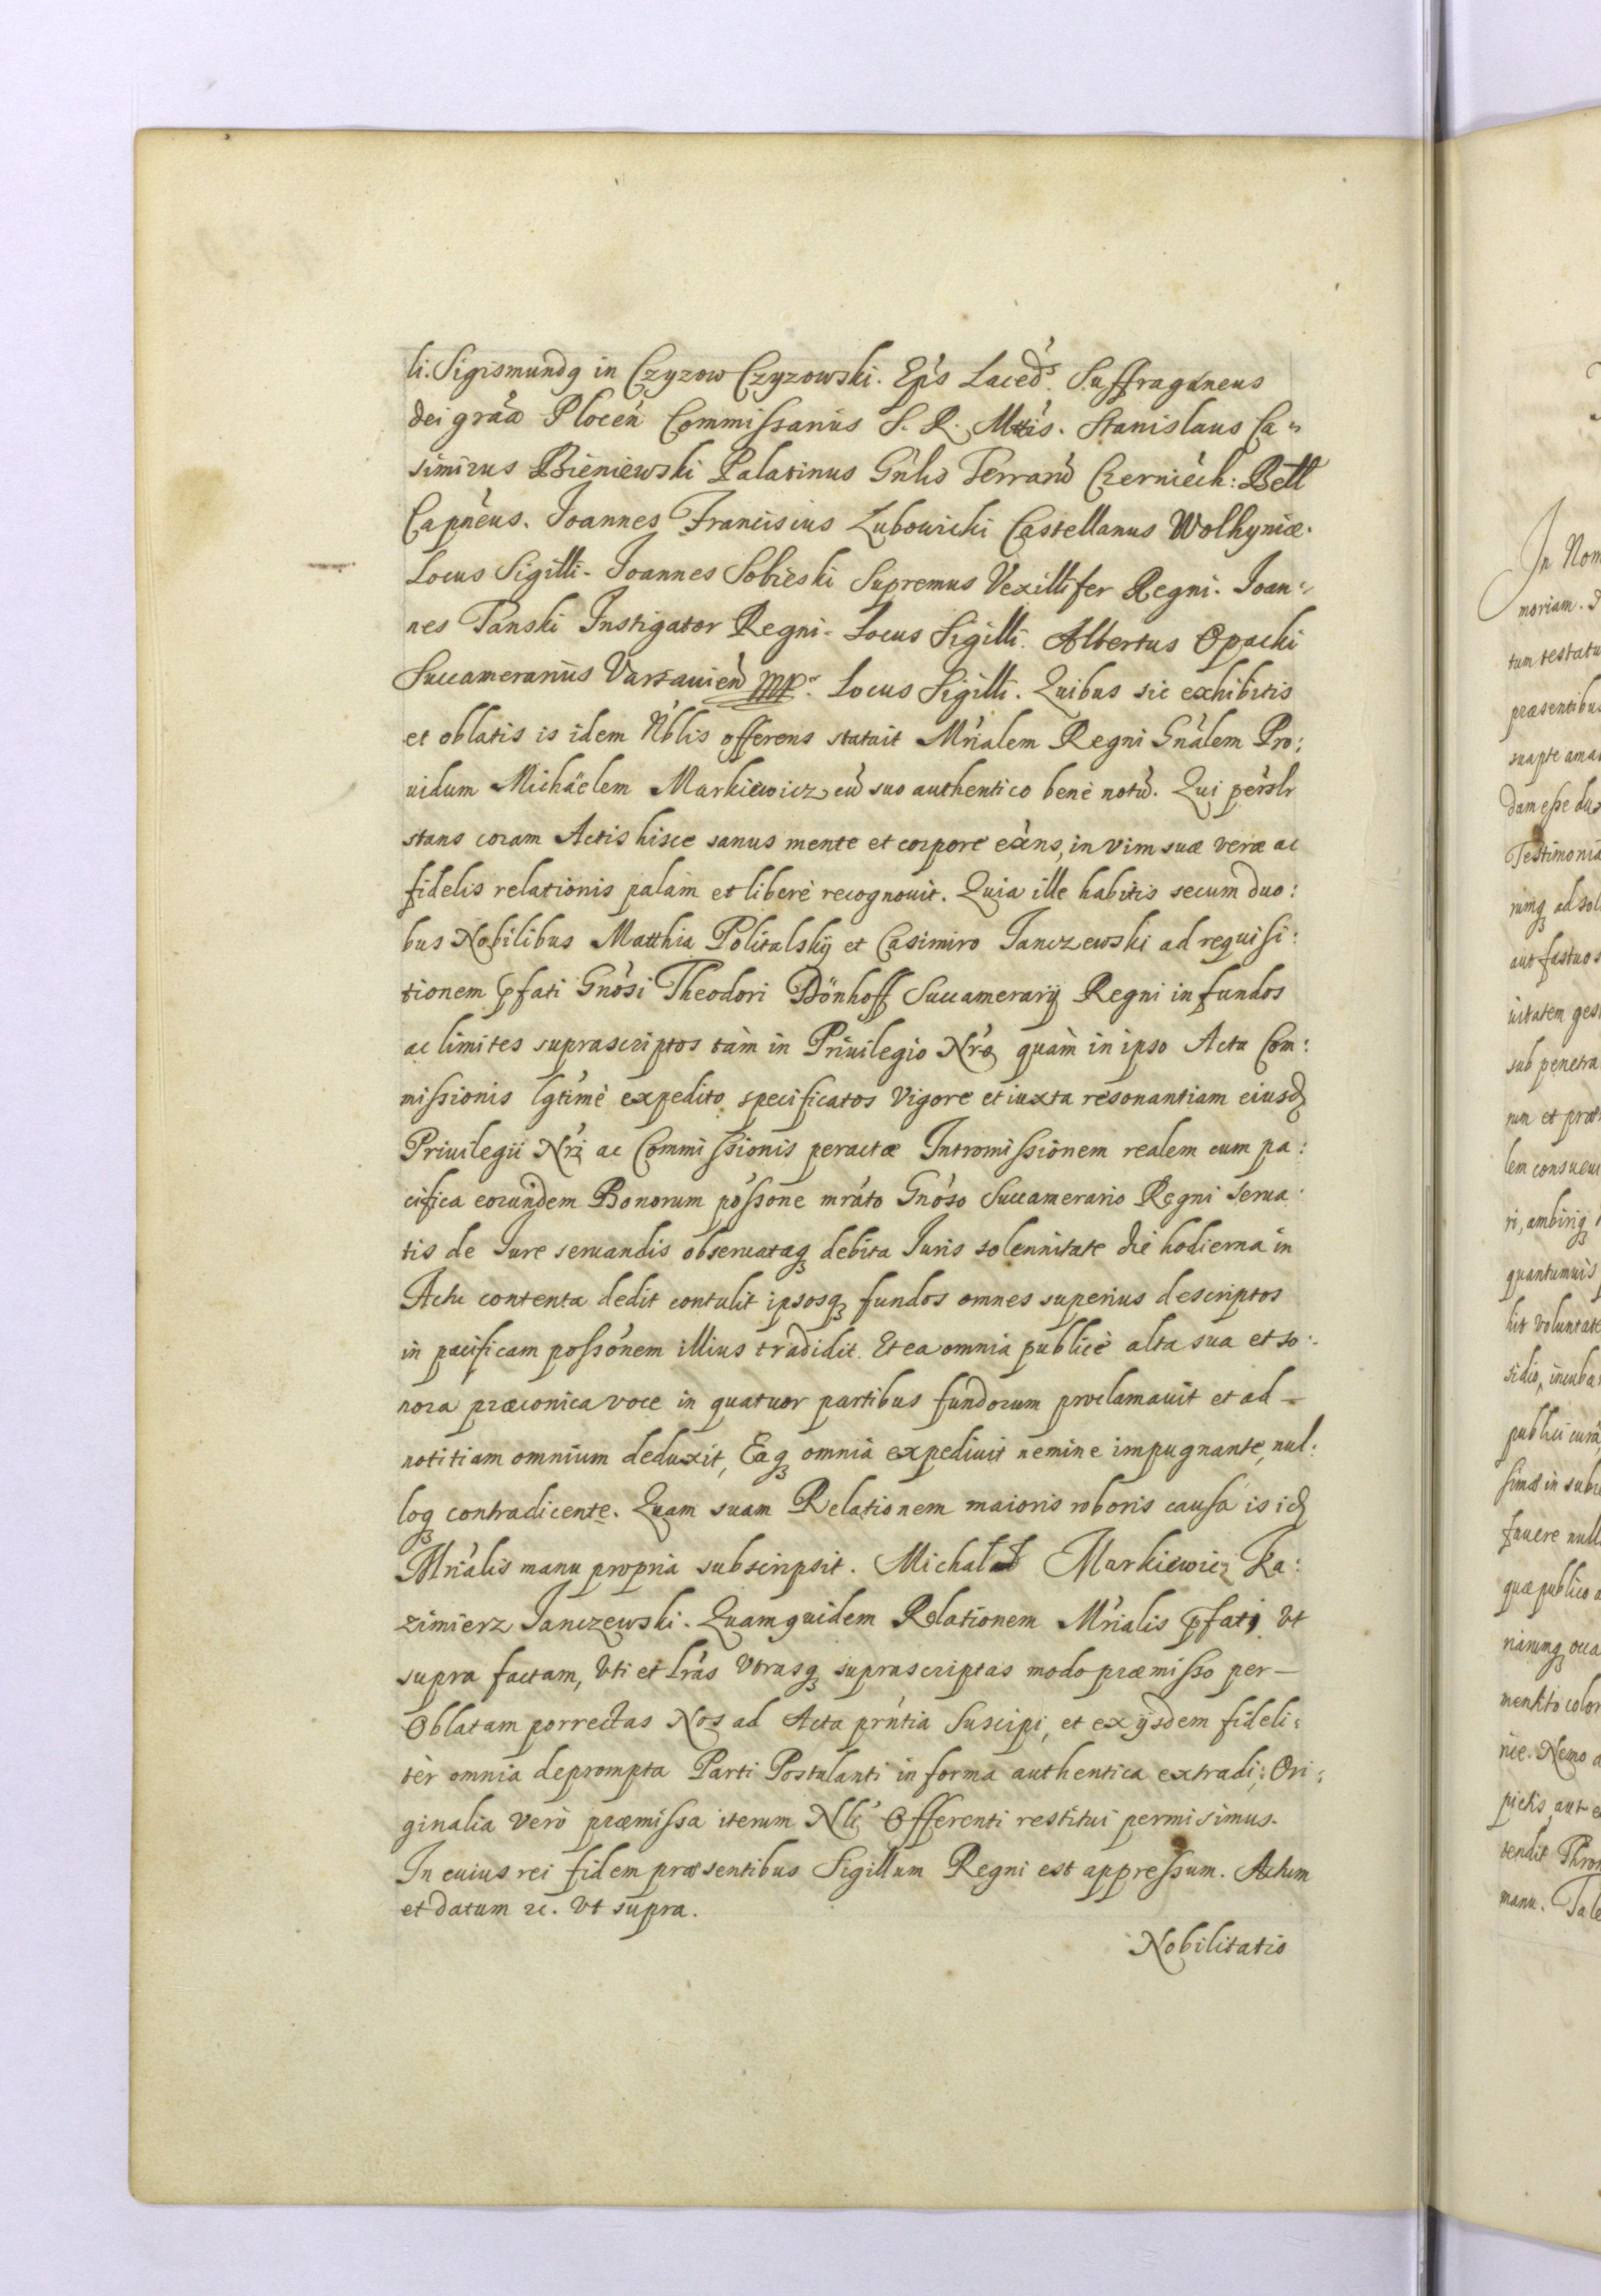 li. Sigismundq in Czyzow Czyzowski. Ep's Laced's. Suffraganeus
dei gra'a Plocen' Commissarius S. R. Mttis. Stanislaus Ca„
simirus Bieniewski Palatinus Gn'lis Terraru' Czerniech: Bell
Capneus. Joannes Franciscus Lubowicki Castellanus Wolhyniæ.
Locus Sigilli. Joannes Sobieski Supremus Vexillifer Regni. Joan„
nes Tanski Instigator Regni. Locus Sigilli. Albertus Opacki
Succamerarius Varsavien' mp. Locus Sigilli. Quibus sic exhibitis
et oblatis is idem N'blis offerens statuit Mr'ialem Regni Gn'alem Pro:
uidum Michäelem Markiewicz, cu' suo authentico benè notu'. Qui perslr
stans coram Actis hisce sanus mente et corpore exa'ns, in vim suæ veræ ac
fidelis relationis palàm et liberè recognouit. Quia ille habitis secum duo:
bus Nobilibus Matthia Politalskij et Casimiro Janczewski ad requisi:
tionem pfati Gno'si Theodori Dönhoff Succamerarij Regni in fundos
ac limites suprascriptos tàm in Priuilegio Nr'o quàm in ipso Actu Com:
missionis lgtimè expedito specificatos Vigore et iuxta resonantiam eiusd
Priuilegii Nr'i ac Commissionis peractæ Intromissionem realem cum pa:
cifica eorundem Bonorum posso'ne mra'to Gno'so Succamerario Regni serua:
tis de Jure seruandis obseruataq debita Juris solennitate die hodierna in
Actu contenta dedit contulit ipsosq fundos omnes superius descriptos
in pacificam posso'nem illius tradidit. Et ea omnia publicè alta sua et so:
nora præconica voce in quatuor partibus fundorum proclamauit et ad -
notitiam omnium deduxit, Eaq omnia expediuit nemine impugnante, nul:
loq contradicente. Quam suam Relationem maioris roboris causa is id
Mr'ialis manu propria subscripsit. Michał Markiewicz Ka:
zimierz Janczewski. Quam quidem Relationem Mr'ialis pfati vt
supra factam, vti et Lra's vtrasq suprascriptas modo præmisso per—
Oblatam porrectas Nos ad Acta prn'tia Suscipi, et ex ijsdem fideli:
tèr omnia deprompta Parti Postulanti in forma authentica extradi; Ori:
ginalia verò præmissa iterum Nli' Offerenti restitui permisimus.
In cuius rei fidem præsentibus Sigillum Regni est appressum. Actum
et datum 2c. vt supra.
Nobilitatio
In Nom
moriam.
tum testatu
præsentibus
suapte
dam esse
Testimonia
rumq ad
aut fastuos
uitatem ges
sub penetra
rum et
lem
ri, ambirq
quantumuis
voluntate
sidio, incuba
publici cura
in
fauere null
quæ publico
riarumq occa
mentito color
Nemo
pietis aut
tendit Thron
manu. Tale